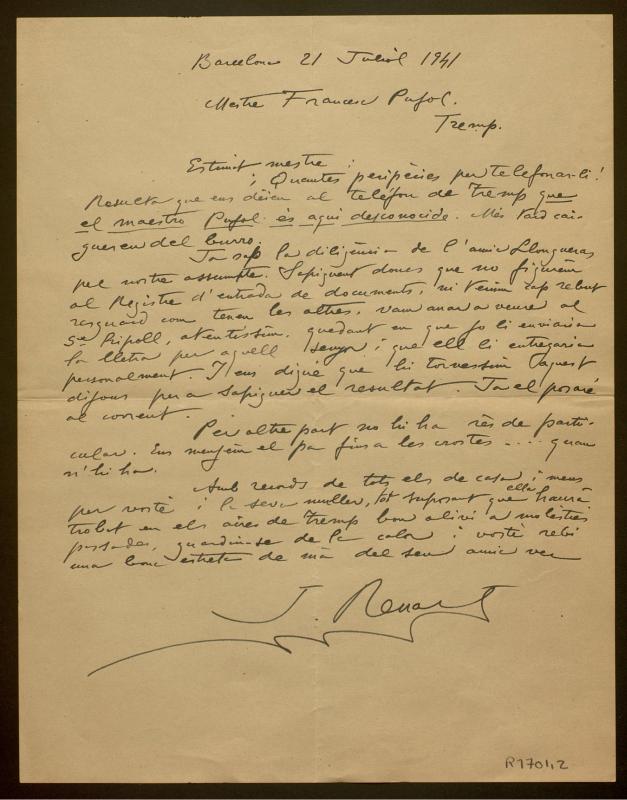 Barcelona 21 Juliol 1941
Mestre Francesc Pujol.
Tremp.
Estimat mestre:
¡Quantes peripècies per telefonar-li!
Resulta que ens déien al telèfon de tremp que
el maestro Pujol és aqui desconocido. Més tard cai-
guereu del burro.
Ja sap la diligència de l'amic Llongueras
pel nostre assumpte. Sapiguent doncs que no figurem
al Registre d'entrada de documents, ni tenim cap rebut
resguard com tenen les altres, vam anar a veure al
Sr Ripoll, atentissim, quedant en que jo li enviaria
la lletra per aquell senyor i que ell li entregaria
personalment. I ens digué que hi tornessim aquest
dijous per a sapiguer el resultat. Ja el posaré
al corrent.
Per altre part no hi ha rès de parti-
cular. Ens mengem el pa fins a les crostes .... quan
n'hi ha.
Amb records de tots els de casa i meus
per vostè i la seva muller, tot suposant que ella haurà
trobat en els aires de tremp bon alivi a molesties
passades, guardin-se de la calor i vostè rebi
una bona estreta de mà del seu amic ver
J. Renart
R170112